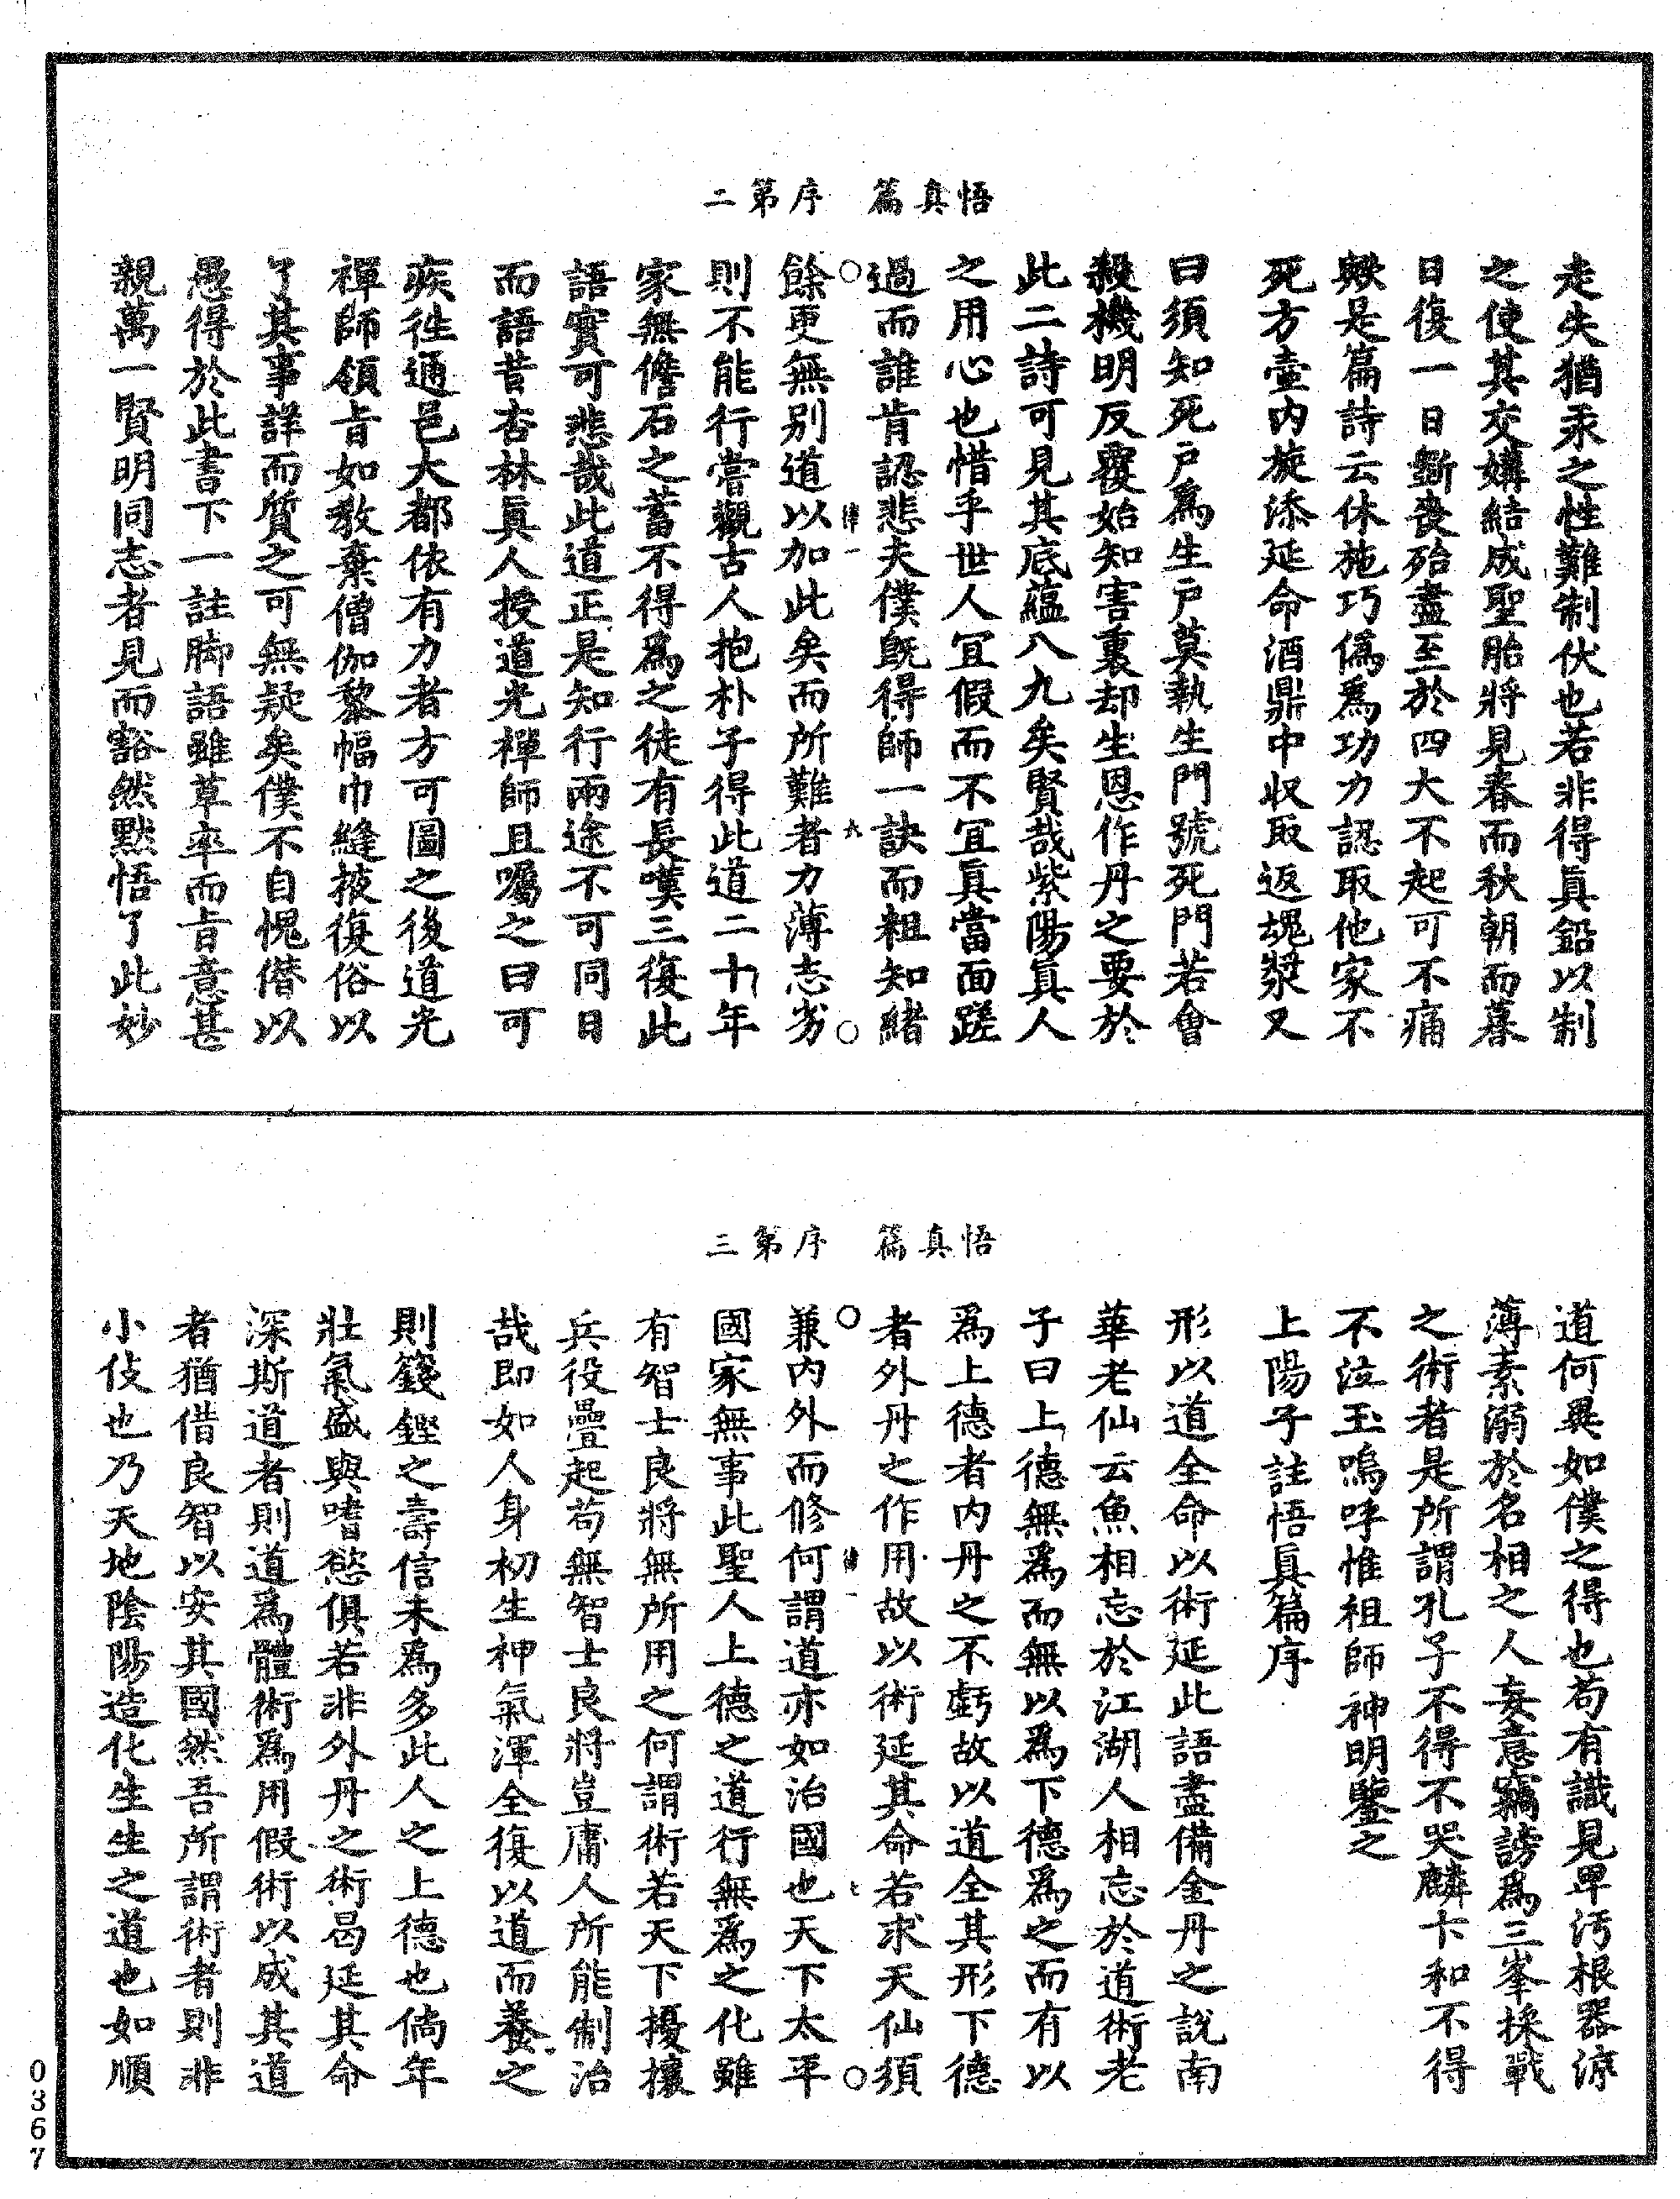 悟真篇　序第二
走失猶汞之性難制伏也若非得眞鉛以制
之使其交媾結成聖胎將見春而秋朝而暮
日復一日斲喪殆盡至於四大不起可不痛
歟是篇詩云休施巧僞爲功力認取他家不
死方壷内旋添延命酒鼎中収取返魂漿又
曰須知死戸爲生戸莫執生門號死門若會
殺機明反覆始知害裏却生恩作丹之要於
此二詩可見其底蘊八九矣賢哉紫陽眞人
之用心也惜乎世人宜假而不宜眞當面蹉
過而誰肯認悲夫僕旣得師一訣而粗知緒
律一　六
餘更無别道以加此矣而所難者力薄志劣
則不能行嘗觀古人抱朴子得此道二十年
家無儋石之蓄不得爲之徒有長嘆三復此
語實可悲哉此道正是知行兩途不可同日
而語昔杏林眞人授道光禪師且囑之曰可
疾徃通邑大都依有力者方可圖之後道光
禪師領旨如教棄僧伽黎幅巾縫掖復俗以
了其事詳而質之可無疑矣僕不自愧僭以
愚得於此書下一註脚語雖草率而旨意甚
親萬一賢明同志者見而豁然黙悟了此妙
悟真篇　序第三
道何異如僕之得也苟有識見卑汚根器涼
薄素溺於名相之人妄意竊謗爲三峯採戰
之術者是所謂孔子不得不哭麟卞和不得
不泣玉嗚呼惟祖師神明鑒之
上陽子註悟眞篇序
形以道全命以術延此語盡備金丹之説南
華老仙云魚相忘於江湖人相忘於道術老
子曰上德無爲而無以爲下德爲之而有以
爲上德者内丹之不虧故以道全其形下德
者外丹之作用故以術延其命若求天仙須
律一　七
兼内外而修何謂道亦如治國也天下太平
國家無事此聖人上德之道行無爲之化雖
有智士良將無所用之何謂術若天下擾攘
兵役疊起苟無智士良將豈庸人所能制治
哉即如人身初生神氣渾全復以道而養之
則籛鏗之壽信未爲多此人之上德也倘年
壯氣盛與嗜慾俱若非外丹之術曷延其命
深斯道者則道爲體術爲用假術以成其道
者猶借良智以安其國然吾所謂術者則非
小伎也乃天地陰陽造化生生之道也如順
0367